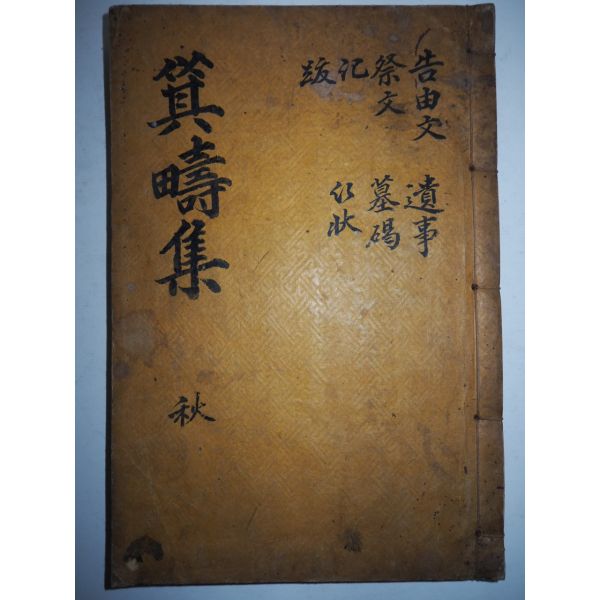 告由文 遺事
祭文 墓碣
記 行狀
跋
箕疇集 秋